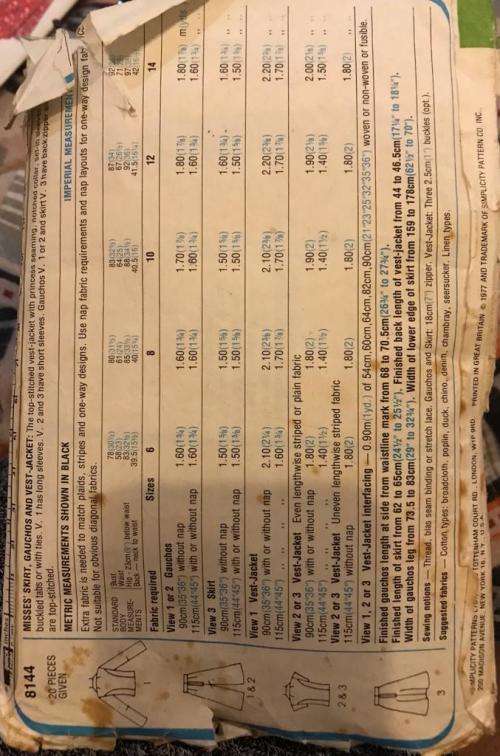 8144
20 PIECES
GIVEN
1
1 & 2
2 & 3
3
MISSES' SKIRT, GAUCHOS AND VEST-JACKET: The top-stitched vest-jacket with princess seaming, notched collar, set-in
buckled tabs or with ties. V. 1 has long sleeves. V. 2 and 3 have short sleeves. Gauchos V. 1 or 2 and skirt V. 3 have back zipper
are top-stitched.
METRIC MEASUREMENTS SHOWN IN BLACK IMPERIAL MEASUREMENT
Extra fabric is needed to match plaids, stripes and one-way designs. Use nap fabric requirements and nap layouts for one-way design fab
Not suitable for obvious diagonal fabrics.
STANDARD
BODY
MEASURE-
MENTS
Waist
Hip 23cm below waist
Back neck to waist
Fabric required Sizes 6 8 10 12 14
View 1 or 2 Gauchos
90cm(35"36") without nap 1.60(1¾) 1.60(1¾) 1.70(1⅞) 1.80(1⅞) 1.80(1⅞)
115cm(44"45") with or without nap 1.60(1¾) 1.60(1¾) 1.60(1¾) 1.60(1¾) 1.60(1¾)
View 3 Skirt
90cm(35"36") without nap 1.50(1⅝) 1.50(1⅝) 1.50(1⅝) 1.60(1¾) 1.60(1¾)
115cm(44"45") with or without nap 1.50(1⅝) 1.50(1⅝) 1.50(1⅝) 1.50(1⅝) 1.50(1⅝)
View 1 Vest-Jacket
90cm(35"36") with or without nap 2.10(2¼) 2.10(2⅜) 2.10(2⅜) 2.20(2⅜) 2.20(2⅜)
115cm(44"45") 1.60(1¾) 1.70(1⅞) 1.70(1⅞) 1.70(1⅞) 1.70(1⅞)
View 2 or 3 Vest-Jacket Even lengthwise striped or plain fabric
90cm(35"36") with or without nap 1.80(2) 1.80(2) 1.90(2) 1.90(2⅛) 2.00(2⅛)
115cm(44"45") 1.40(1½) 1.40(1½) 1.40(1½) 1.40(1½) 1.50(1⅝)
View 2 or 3 Vest-Jacket Uneven lengthwise striped fabric
115cm(44"45") without nap 1.80(2) 1.80(2) 1.80(2) 1.80(2) 1.80(2)
View 1, 2 or 3 Vest-Jacket Interfacing — 0.90m(1yd.) of 54cm,60cm,64cm,82cm,90cm(21"23"25"32"35"36") woven or non-woven or fusible.
Finished gauchos length at side from waistline mark from 68 to 70.5cm(26¾" to 27¾").
Finished length of skirt from 62 to 65cm(24½" to 25½"). Finished back length of vest-jacket from 44 to 46.5cm(17¼" to 18¼").
Width of gauchos leg from 73.5 to 83cm(29" to 32¾"). Width of lower edge of skirt from 159 to 178cm(62½" to 70").
Sewing notions — Thread, bias seam binding or stretch lace. Gauchos and Skirt: 18cm(7") zipper. Vest-Jacket: Three 2.5cm(1") buckles (opt.).
Suggested fabrics — Cotton types: broadcloth, poplin, duck, chino, denim, chambray, seersucker. Linen types
TOTTENHAM COURT RD., LONDON, PRINTED IN GREAT BRITAIN © 1977 AND TRADEMARK OF SIMPLICITY PATTERN CO. INC.
200 MADISON AVENUE, NEW YORK